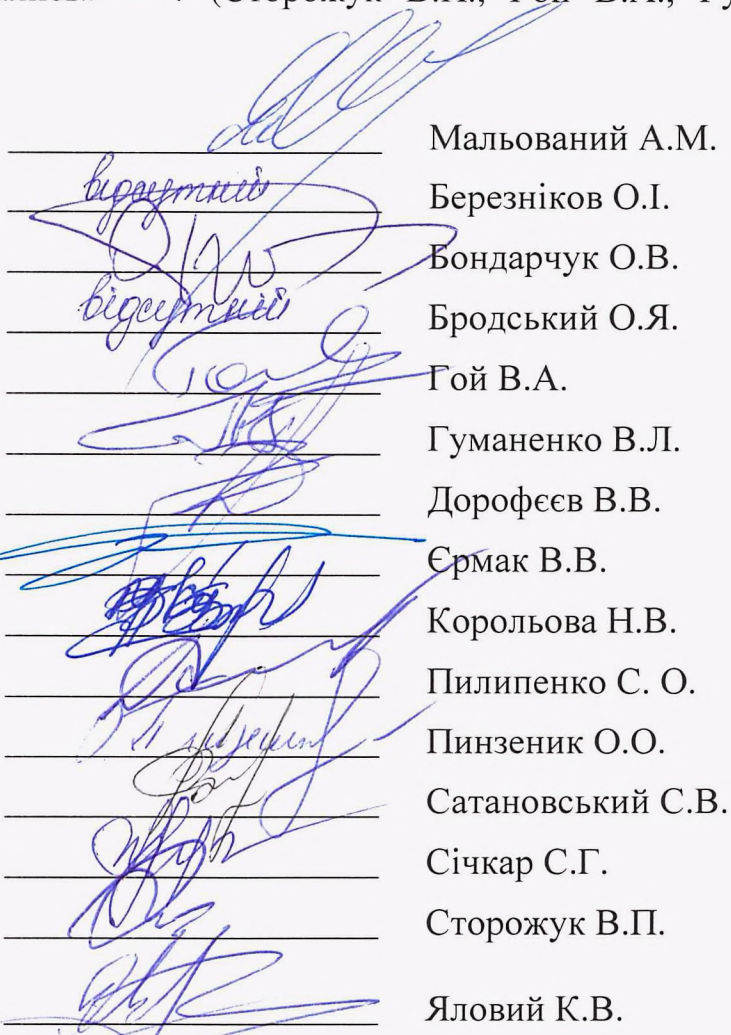 (Сторожук В.П., Гой В.А., Гу
Мальований А.М.
відсутній Березніков О.І.
Бондарчук О.В.
відсутній Бродський О.Я.
Гой В.А.
Гуманенко В.Л.
Дорофєєв В.В.
Єрмак В.В.
Корольова Н.В.
Пилипенко С. О.
Пинзеник О.О.
Сатановський С.В.
Січкар С.Г.
Сторожук В.П.
Яловий К.В.